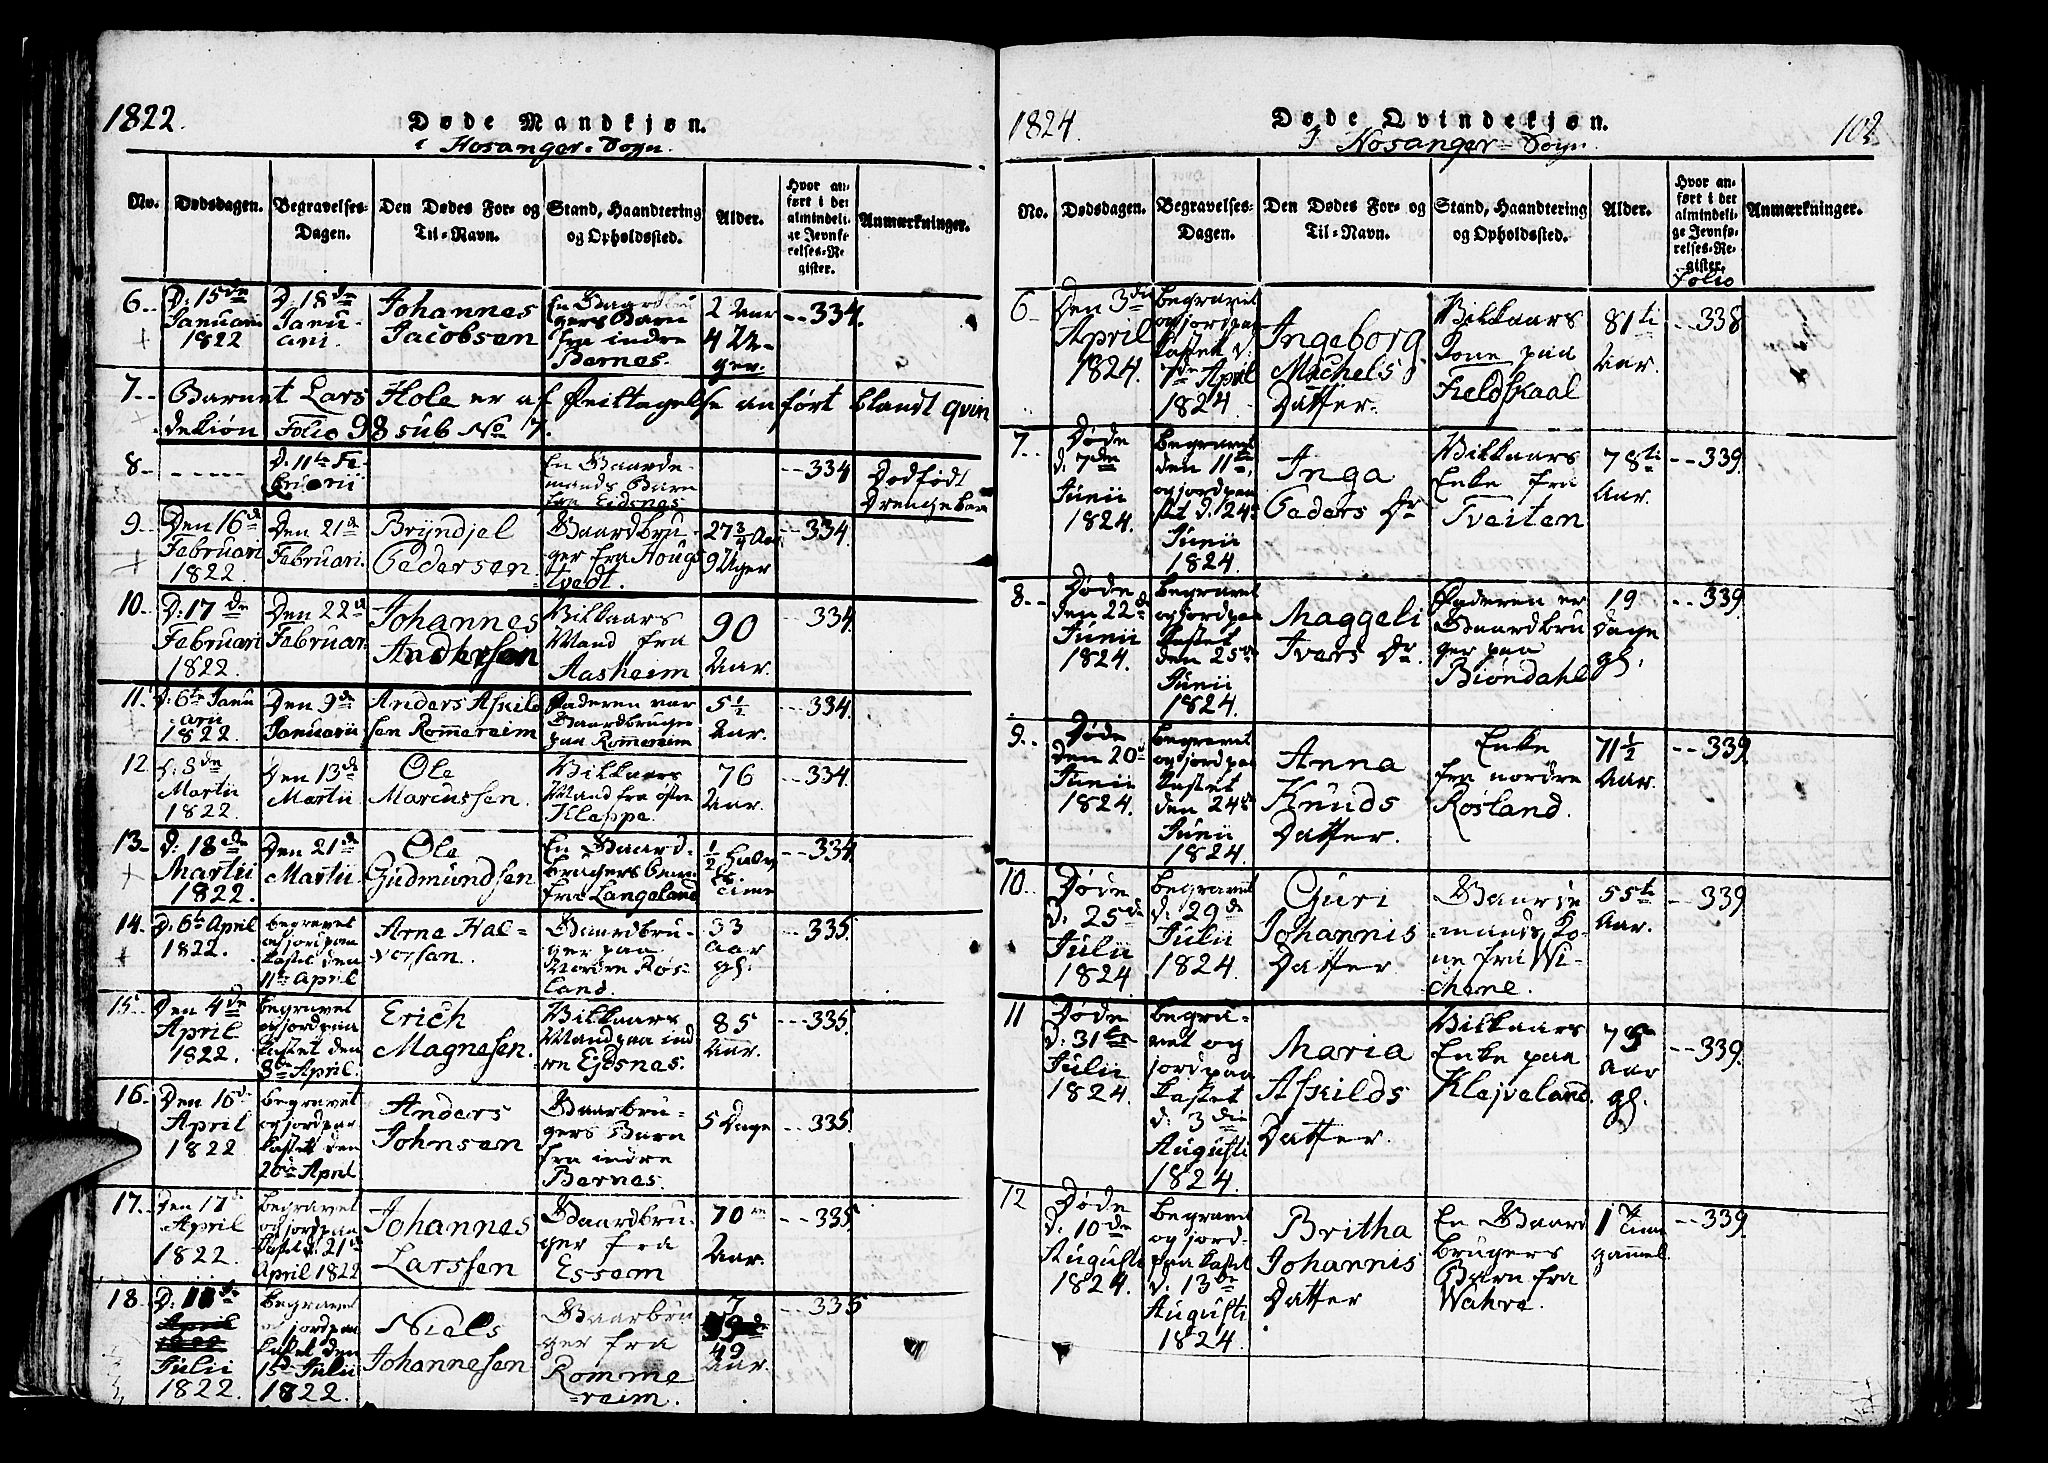 1822.
Døde Mandkjøn.
i Hosanger-Sogn.
No.
Dødsdagen.
Begravelses-
Dagen.
Den Dødes For- og
Til-Navn.
Stand, Haandtering
og Opholdssted.
Alder.
Hvor an-
ført i det
almindeli-
ge Jevnfø-
relses-Re-
gister.
Anmærkninger.
6.
D: 15de
Januari
1822
D: 18de
Janu-
ari.
Johannes
Jacobsen
En Gaardbru
gers Barn
fra indre
Bernes.
2 Aar
4 Uk-
ger.
334.
7.
Barnet Lars Hole er af Feiltagelse anført blandt qvin
dekiøn Folio 98 sub No 7.
8
D: 11te Fe-
bruarii
En Gaarde-
mands Barn
fra Eidsnes
334
Dødfødt
Drengebarn
9.
Den 16de
Februari
1822.
Den 21de
Februari.
Bryndjel
Pedersen
Gaardbru-
ger fra Houg
tvedt.
27 3/4 Aar
9 Uger
334.
10.
D: 17de
Februari
1822.
Den 22de
Februari.
Johannes
Andersen
Vilkaars
Mand fra
Aasheim
90
Aar.
334.
11.
D: 6te Janu
arii
1822.
Den 9de
Januarii
Anders Askild
sen Rommereim
Faderen var
Gaardbruger
paa Rommereim
5 1/2
Aar.
334.
12
D: 8de
Martii
1822.
Den 13de
Martii
Ole
Marcussen.
Vilkaars
Mand fra østre
Kleppe.
76
Aar.
334.
13.
D: 18de
Martii
1822.
Den 21de
Martii.
Ole
Gudmundsen
En Gaard-
brugers Barn
fra Langeland
1/2 halv
Time
334.
14.
D: 6te April
1822.
begravet
og jord paa
kastet den
11te April
Arne Hal-
versen.
Gaardbru-
ger paa
Nordre Røs-
land.
33
Aar
gl:
335.
15.
Den 4de
April
1822.
begravet
og jord paa
kastet den
8de April.
Erich
Magnesen.
Vilkaars
Mand paa ind
ren Ejdsnes.
85
Aar.
335.
16.
Den 16de
April
1822
begravet
og jord paa
kastet den
20de April
Anders
Johnsen
Gaarbru-
gers Barn
fra indre
Bernes.
5 Dage
335.
17.
Den 17de
April
1822.
begravet
og jord paa
kastet d: 21de
April 1822
Johannes
Larssen
Gaardbru-
ger fra
Essem
70
Aar.
335
18.
D: 11de
Julii
1822.
begravet
og jord paa
kastet den
15de Julii
1822.
Niels
Johannesen
Gaarbru
ger fra
Romme
reim.
49
Aar.
335
1824.
Døde Qvindekjøn.
I Hosanger-Sogn.
102
No.
Dødsdagen.
Begravelses-
Dagen.
Den Dødes For- og
Til-Navn.
Stand, Haandtering
og Opholdssted.
Alder.
Hvor an-
ført i det
almindeli-
ge Jevnfø-
relses-Re-
gister.
Folio
Anmærkninger.
6
Den 3die
April
1824.
begravet
og jord paa
kastet d:
7de April
1824.
Ingeborg
Michels
Datter.
Vilkaars
Kone paa
Fieldskaal
81ti
Aar.
338
7.
Døde
d: 7de
Junii
1824.
begravet
den 11te,
og jord paa
k̃st d. 24de
Junii
1824.
Inga
Peders Dr
Vilkaars
Enke fra
Tveiten
78ti
Aar.
339.
8.
Døde
den 22de
Junii
1824.
begravet
og jord paa
kastet
den 25de
Junii
1824.
Maggeli
Ivers Dr.
Faderen er
Gaardbru
ger paa
Biøndahl
19
Dage
gl:
339
9.
Døde
den 20de
Junii
1824.
begravet
og jord paa
kastet
den 24de
Junii
1824.
Anna
Knuds
Datter.
Enke
fra nordre
Røsland.
71 1/2
Aar.
339
10.
Døde
d: 25de
Julii
1824
begravet
d: 29de
Julii
1824.
Guri
Johannis
Datter
Gaarde
mands Ko-
ne fra Wi-
chene.
55te
Aar.
339
11
Døde
d: 31te
Julii
1824.
begra-
vet og
jord paa
kastet
d: 3die
Augusti
1824.
Maria
Askilds
Datter.
Vilkaars
Enke paa
Klejveland.
75
Aar
gl.
339.
12
Døde
d: 10de
Augusti
1824.
begravet
og jord-
paa kastet
d: 13de
Augusti
1824.
Britha
Johannis
Datter
En Gaard
brugers
Barn fra
Wahre.
1 Time
gammel.
339.